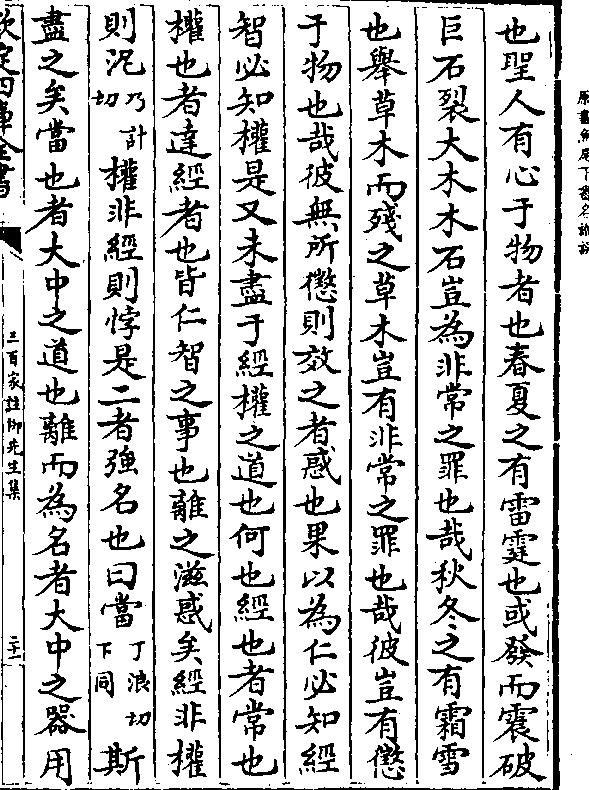 也聖人有心于物者也春夏之有雷霆也或發而震破
巨石裂大木木石豈為非常之罪也哉秋冬之有霜雪
也舉草木而殘之草木豈有非常之罪也哉彼豈有懲
于物也哉彼無所懲則效之者惑也果以為仁必知經
智必知權是又未盡于經權之道也何也經也者常也
權也者達經者也皆仁智之事也離之滋惑矣經非權
則泥乃計切權非經則悖是二者強名也曰當丁浪切下同斯
盡之矣當也者大中之道也離而為名者大中之器用
欽定四庫全書
五百家註柳先生集
二十一